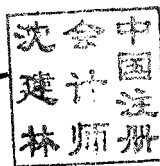 中国注册
会计师
沈建林